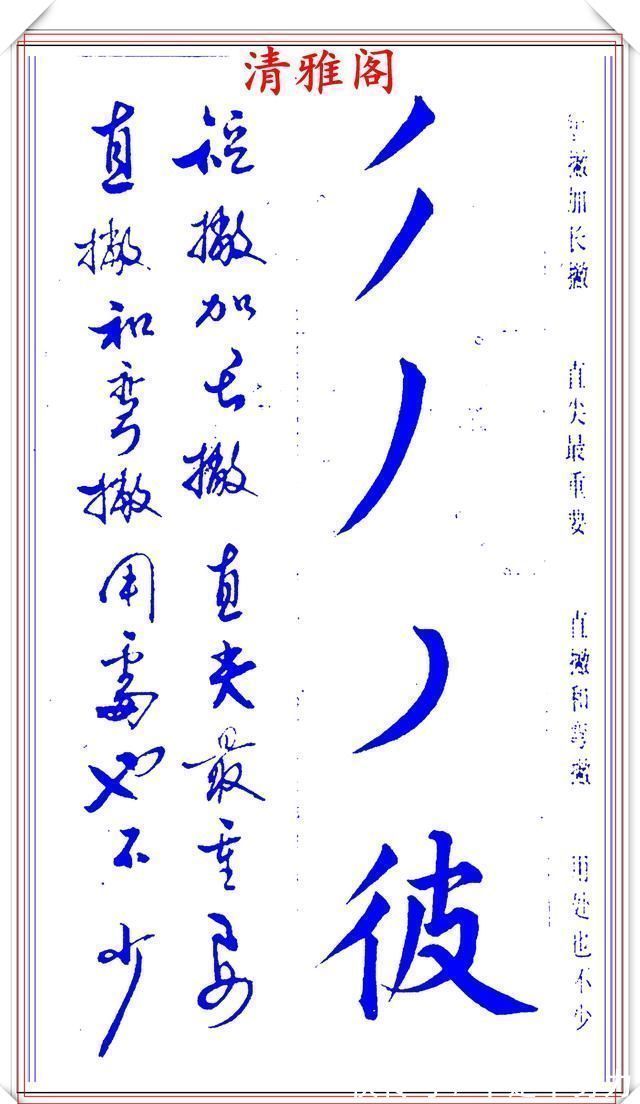 清雅阁
短撇加长撇 直尖最重要 直撇和弯撇 用处也不少
丿丿丿丿彼
短撇加长撇直尖最重要
直撇和弯撇用处也不少